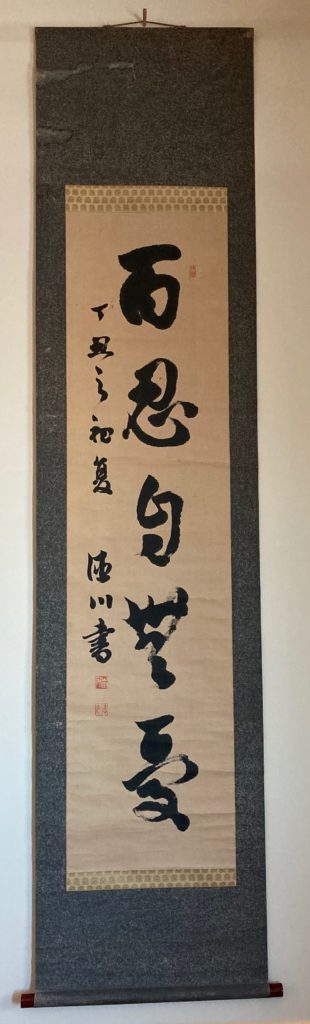 百忍自無憂
丁丑之初夏
川書